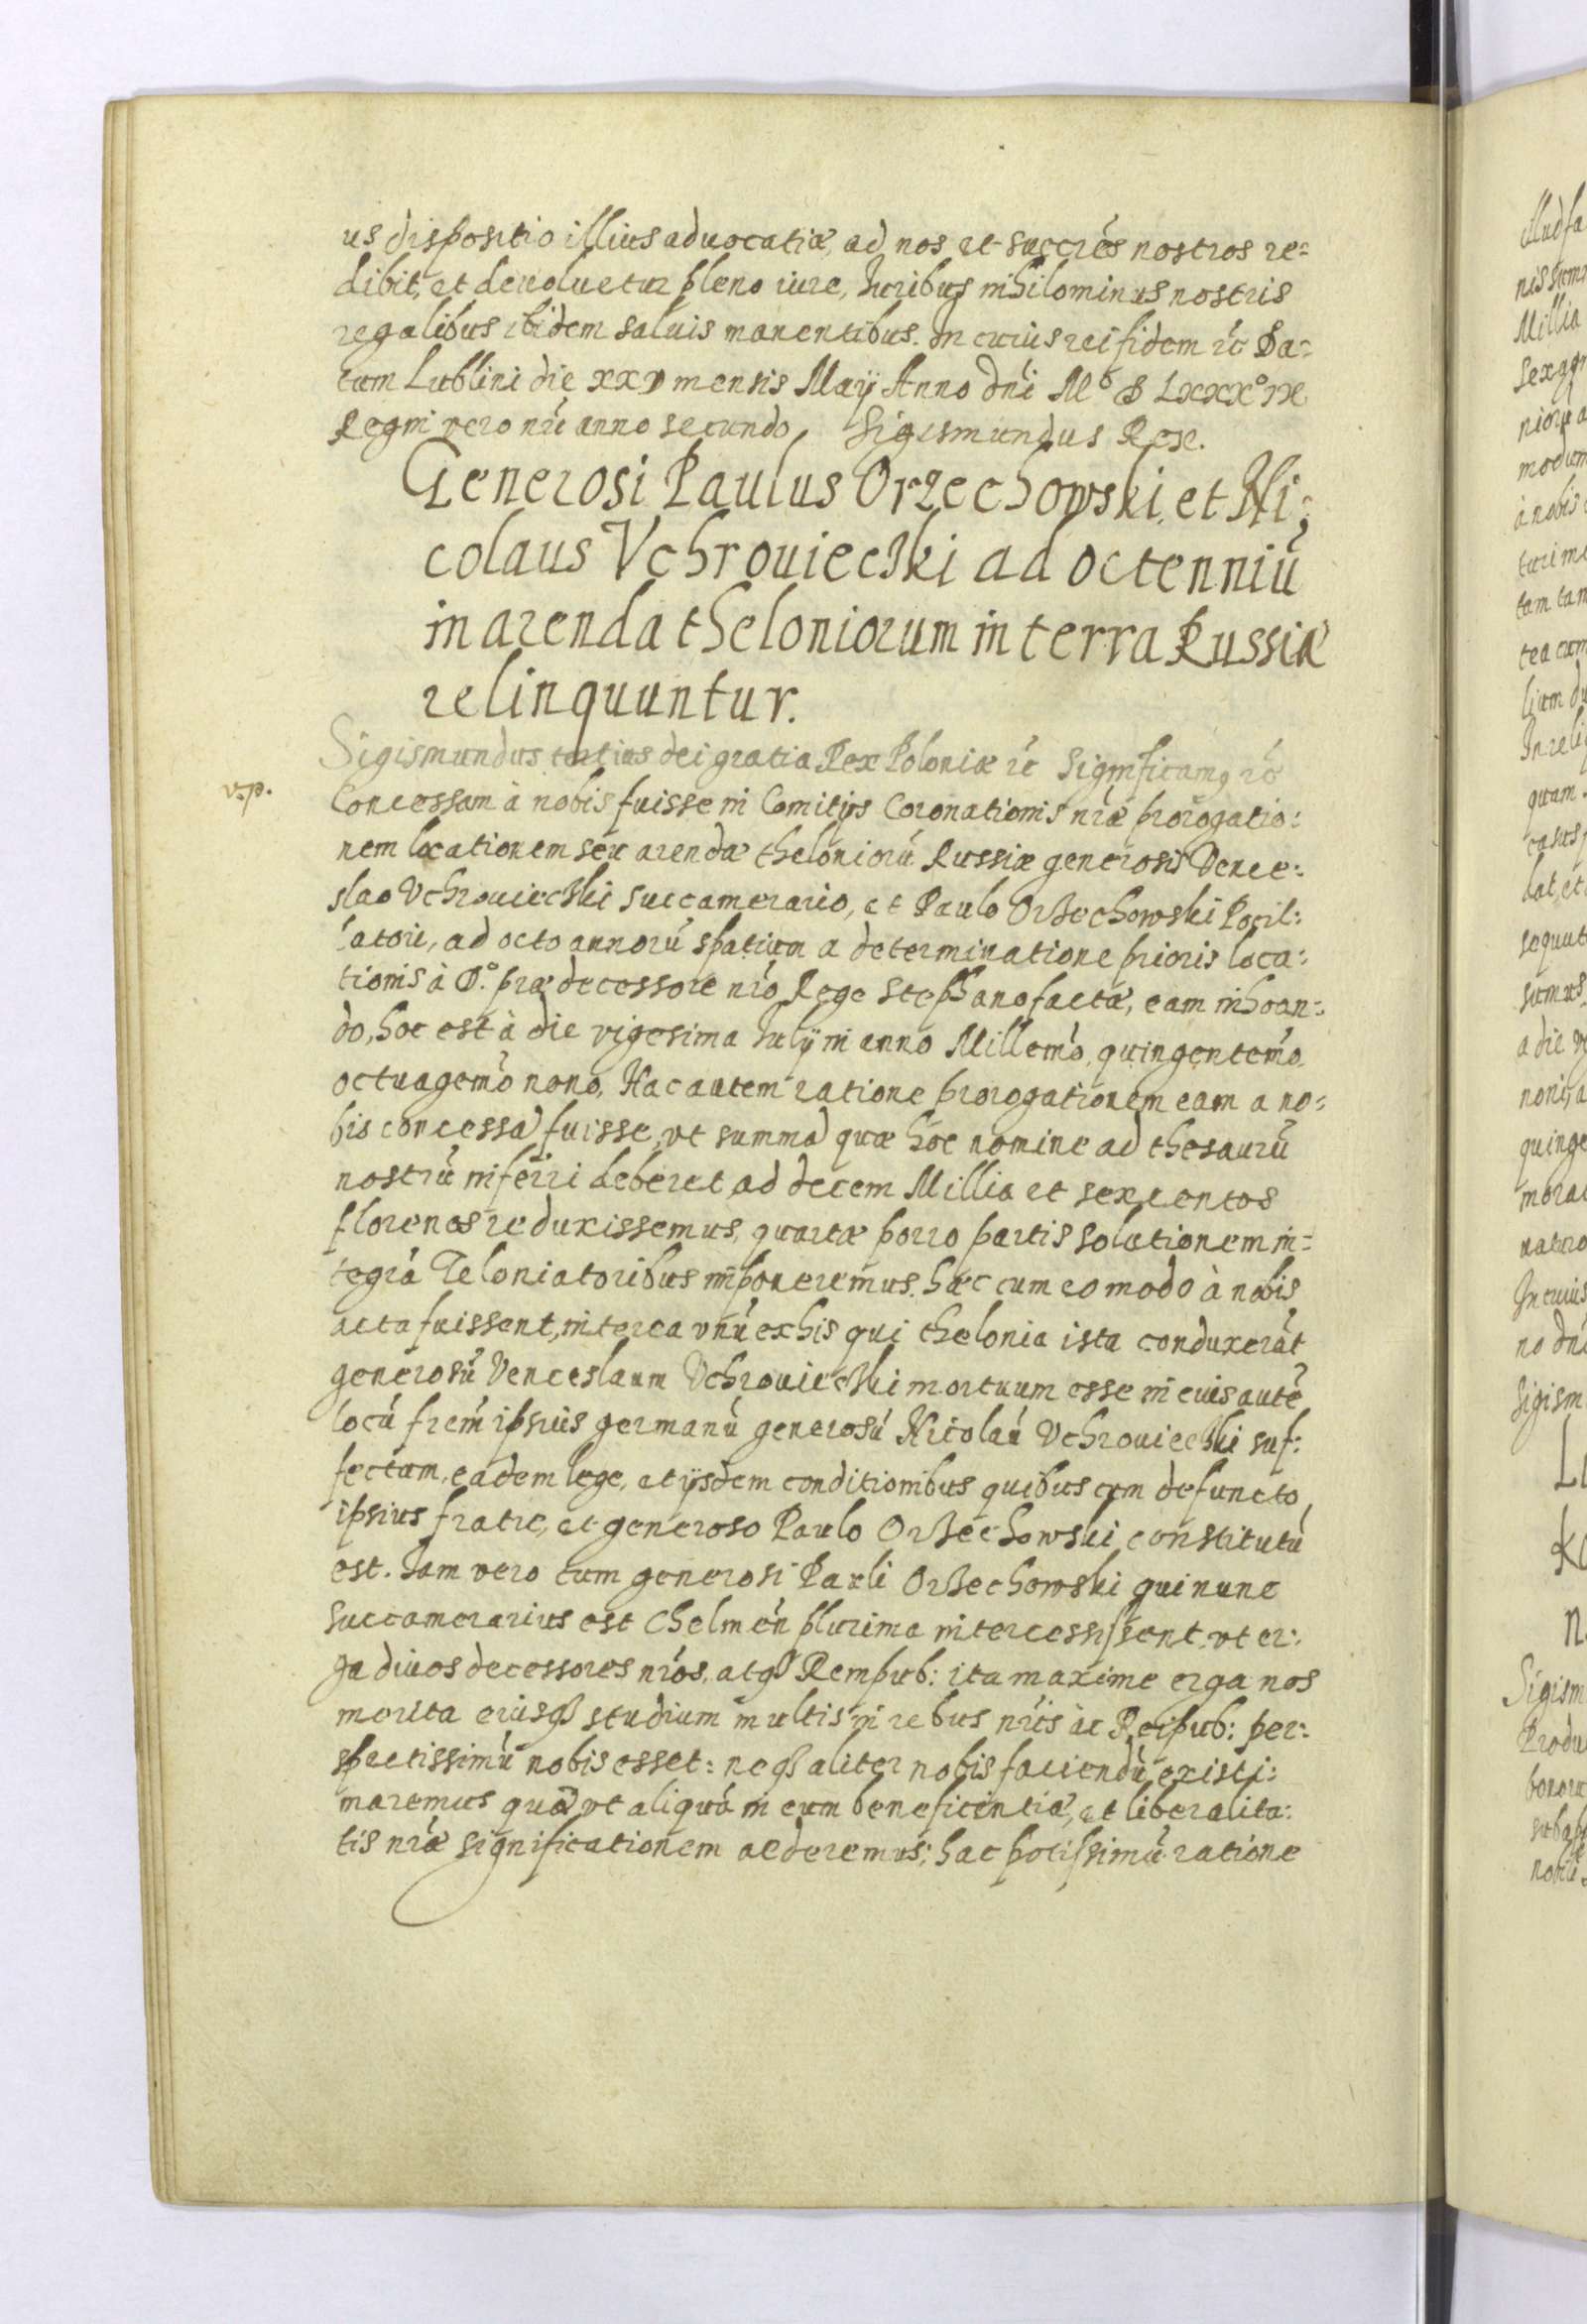 us dispositio illius aduocatiæ, ad nos et succrés nostros re=
dibit, et deuoluetur pleno iure, Iuribus nihilominus nostris
regalibus ibidem saluis manentibus. In cuius rei fidem rc̃ Da=
tum Lublini die xxv mensis Maÿ Anno dn̄i Mº D Lxxxº ix
Regni vero nr̄i anno secundo, Sigismundus Rex.
Generosi Paulus Orzechowski, et Ni;
colaus Vchrouieczki ad octenniū
in arenda theloniorum in terra Russiæ
relinquuntur.
Sigismundus tertius dei gratia Rex Poloniæ rc̃ Significamꝰ rc̃
v.p.
Concessam à nobis fuisse in Comitÿs Coronationis nr̄æ prorogatio:
nem locationem seu arendæ theloniorū Russiæ generosis Vence:
slao Vchrouieczki succamerario, et Paulo Orzechowski Pocil:
latori, ad octo annorū spatium a determinatione prioris loca:
tionis à D.º prædecessore nr̄o Rege Stephano factæ, eam inhoan:
do, hoc est à die vigesima Iulÿ in anno Millem̄o, quingentem̄o
octuagem̄o nono, Hac autem ratione prorogationem eam a no:
bis concessā fuisse, vt summā quæ hoc nomine ad thesaurū
nostrū inferri deberet, ad decem Millia et sexcentos
florenos reduxissemus, quartæ porro partis solutionem in=
tegrā Teloniatoribus imponeremus. hæc cum eo modo à nobis
acta fuissent, interea vnū ex his qui thelonia ista conduxerāt
generosū Venceslaum Vchrouieczki mortuum esse in euis autē
locū frem̄ ipsius germanū generosū Nicolaū Vchrouieczki suf:
fectum, eadem lege, et ÿsdem conditionibus quibus cum defuncto
ipsius fratre, et generoso Paulo Orzechowski constitutū
est. Iam vero tum generosi Pauli Orzechowski qui nunc
succamerarius est Chelmeñ plurima intercessissent, vt er:
ga diuos decessores nr̄os, atqȝ Rempub: ita maxime erga nos
merita eiusqȝ studium multis in rebus nr̄is ac Reipub: per:
spectissimū nobis esset: neqȝ aliter nobis faciendū existi:
maremus quā vt aliquā in eum beneficintiæ, et liberalita:
tis nr̄æ significationem aederemus; hac potissimū ratione